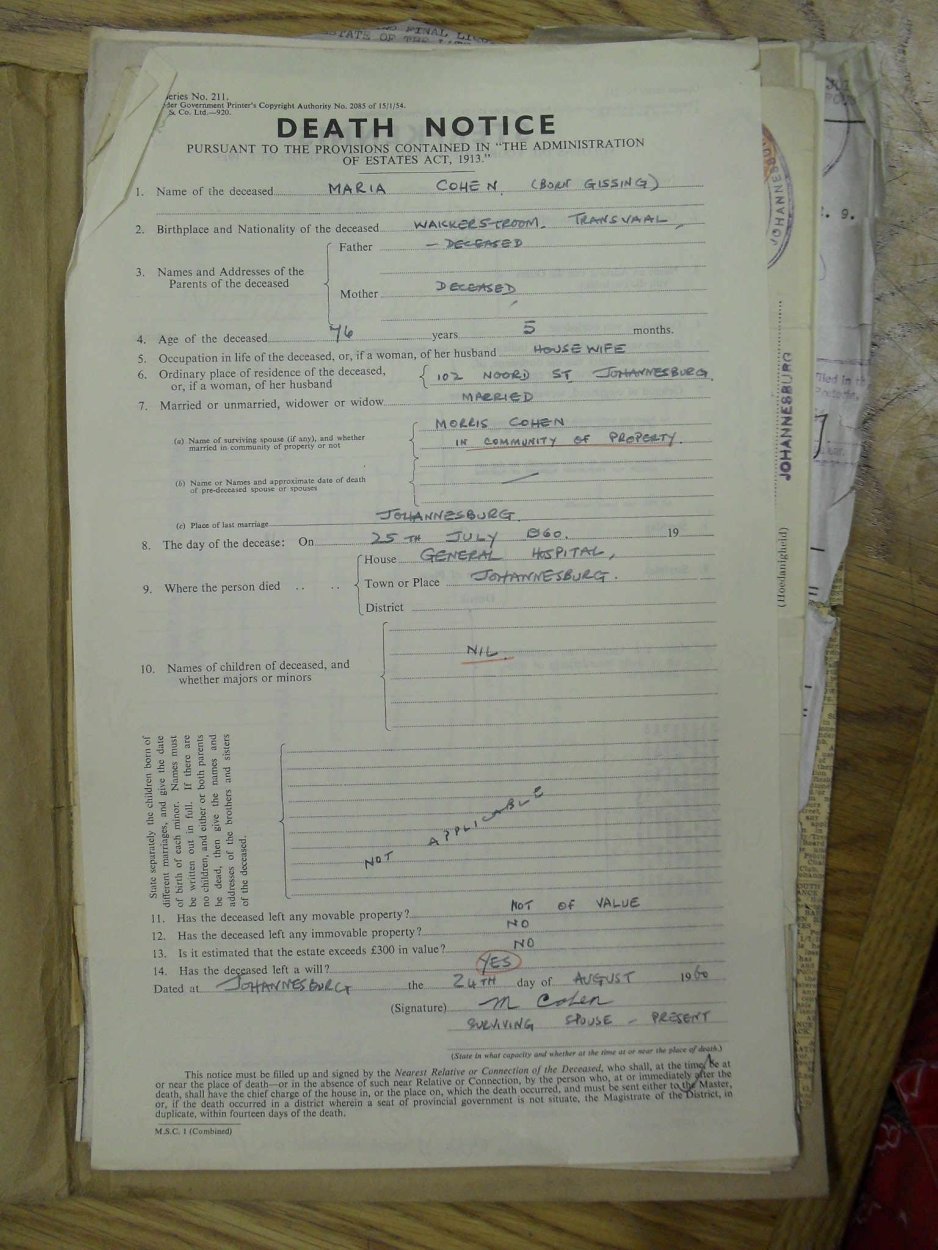 FINAL LI
STATE OF THE LATE
eries No. 211.
der Government Printer's Copyright Authority No. 2085 of 15/1/54.
& Co. Ltd.—920.
DEATH NOTICE
PURSUANT TO THE PROVISIONS CONTAINED IN "THE ADMINISTRATION
OF ESTATES ACT, 1913."
1. Name of the deceased MARIA COHEN (BORN GISSING)
2. Birthplace and Nationality of the deceased WAICKERSTROOM. TRANSVAAL,
3. Names and Addresses of the Parents of the deceased
Father - DECEASED
Mother DECEASED
4. Age of the deceased 76 years 5 months.
5. Occupation in life of the deceased, or, if a woman, of her husband HOUSEWIFE
6. Ordinary place of residence of the deceased,
or, if a woman, of her husband
102 NOORD ST JOHANNESBURG.
7. Married or unmarried, widower or widow MARRIED
(a) Name of surviving spouse (if any), and whether
married in community of property or not
MORRIS COHEN
IN COMMUNITY OF PROPERTY.
(b) Name or Names and approximate date of death
of pre-deceased spouse or spouses
(c) Place of last marriage JOHANNESBURG
8. The day of the decease: On 25TH JULY 1960. 19
9. Where the person died .. ..
House GENERAL HOSPITAL,
Town or Place JOHANNESBURG.
District
10. Names of children of deceased, and
whether majors or minors
NIL.
State separately the children born of
different marriages, and give the date
of birth of each minor. Names must
be written out in full. If there are
no children, and either or both parents
be dead, then give the names and
addresses of the brothers and sisters
of the deceased.
NOT APPLICABLE
11. Has the deceased left any movable property? NOT OF VALUE
12. Has the deceased left any immovable property? NO
13. Is it estimated that the estate exceeds £300 in value? NO
14. Has the deceased left a will? YES
Dated at JOHANNESBURG the 24TH day of AUGUST 1960
(Signature) M Cohen
SURVIVING SPOUSE - PRESENT
(State in what capacity and whether at the time at or near the place of death.)
This notice must be filled up and signed by the Nearest Relative or Connection of the Deceased, who shall, at the time, be at
or near the place of death—or in the absence of such near Relative or Connection, by the person who, at or immediately after the
death, shall have the chief charge of the house in, or the place on, which the death occurred, and must be sent either to the Master,
or, if the death occurred in a district wherein a seat of provincial government is not situate, the Magistrate of the District, in
duplicate, within fourteen days of the death.
M.S.C. 1 (Combined)
JOHANNESBURG
JOHANNESBURG
(Hoedanigheid)